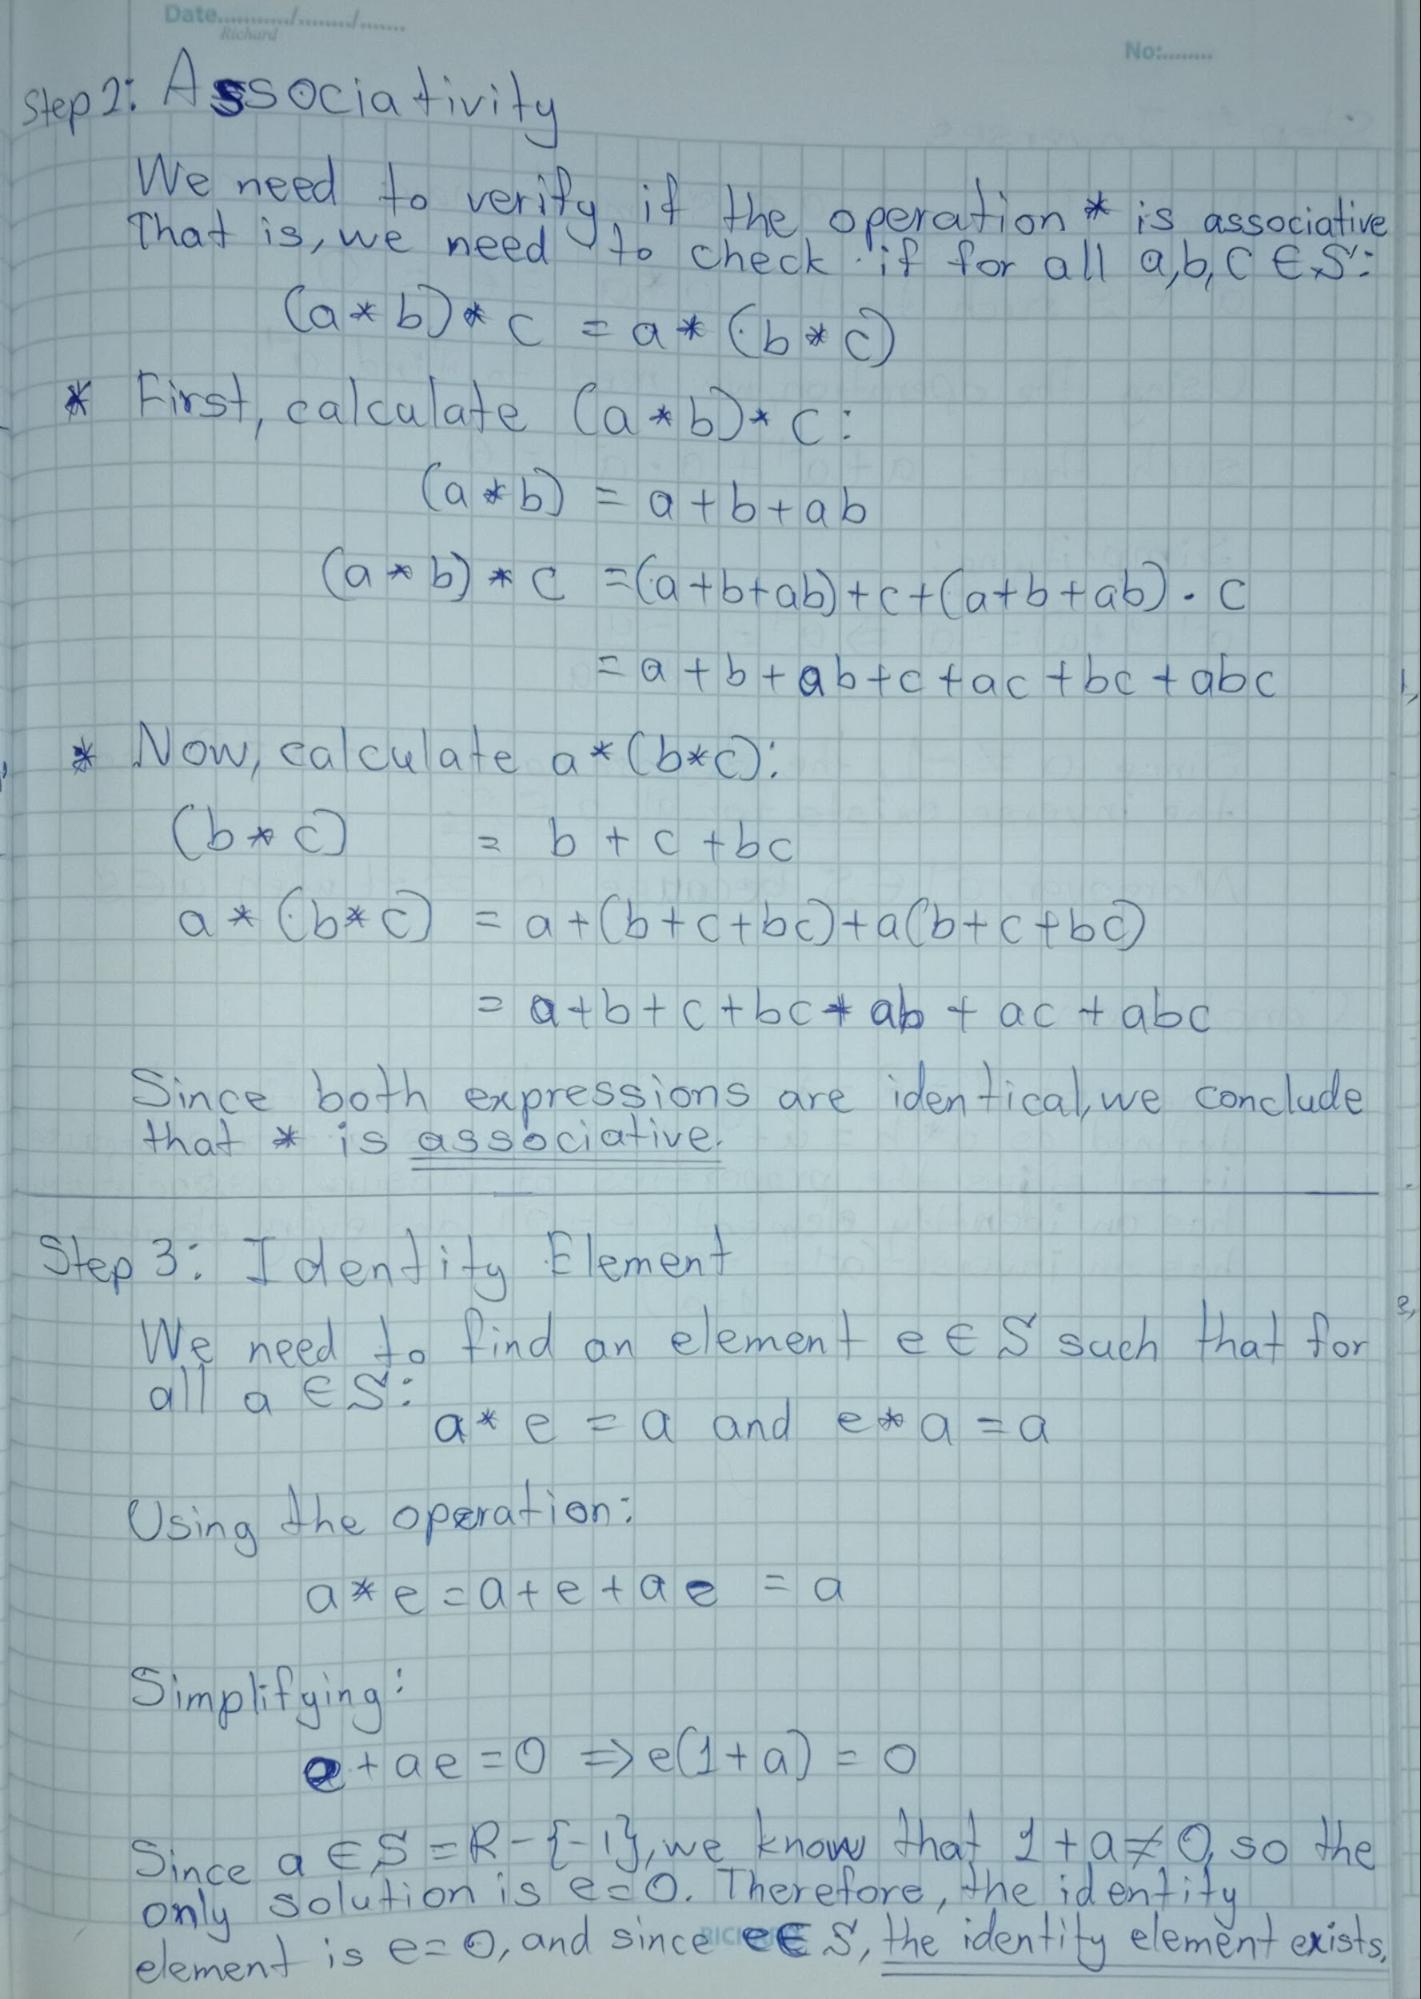 Date............/........./.......
Richard
No:........
Step 2: Associativity
We need to verify if the operation * is associative
That is, we need to check if for all a,b,c ∈ S:
(a * b) * c = a * (b * c)
* First, calculate (a * b) * c:
(a * b) = a + b + ab
(a * b) * c = (a+b+ab)+c+(a+b+ab) . c
= a + b + ab + c + ac + bc + abc
* Now, calculate a * (b*c):
(b * c) = b + c + bc
a * (b * c) = a + (b + c + bc) + a(b + c + bc)
= a + b + c + bc + ab + ac + abc
Since both expressions are identical, we conclude
that * is associative.
Step 3: Identity Element
We need to find an element e ∈ S such that for
all a ∈ S:
a * e = a and e * a = a
Using the operation:
a * e = a + e + ae = a
Simplifying:
e + ae = 0 ⇒ e(1 + a) = 0
Since a ∈ S = R - {-1}, we know that 1 + a ≠ 0, so the
only solution is e = 0. Therefore, the identity
element is e = 0, and since e ∈ S, the identity element exists.